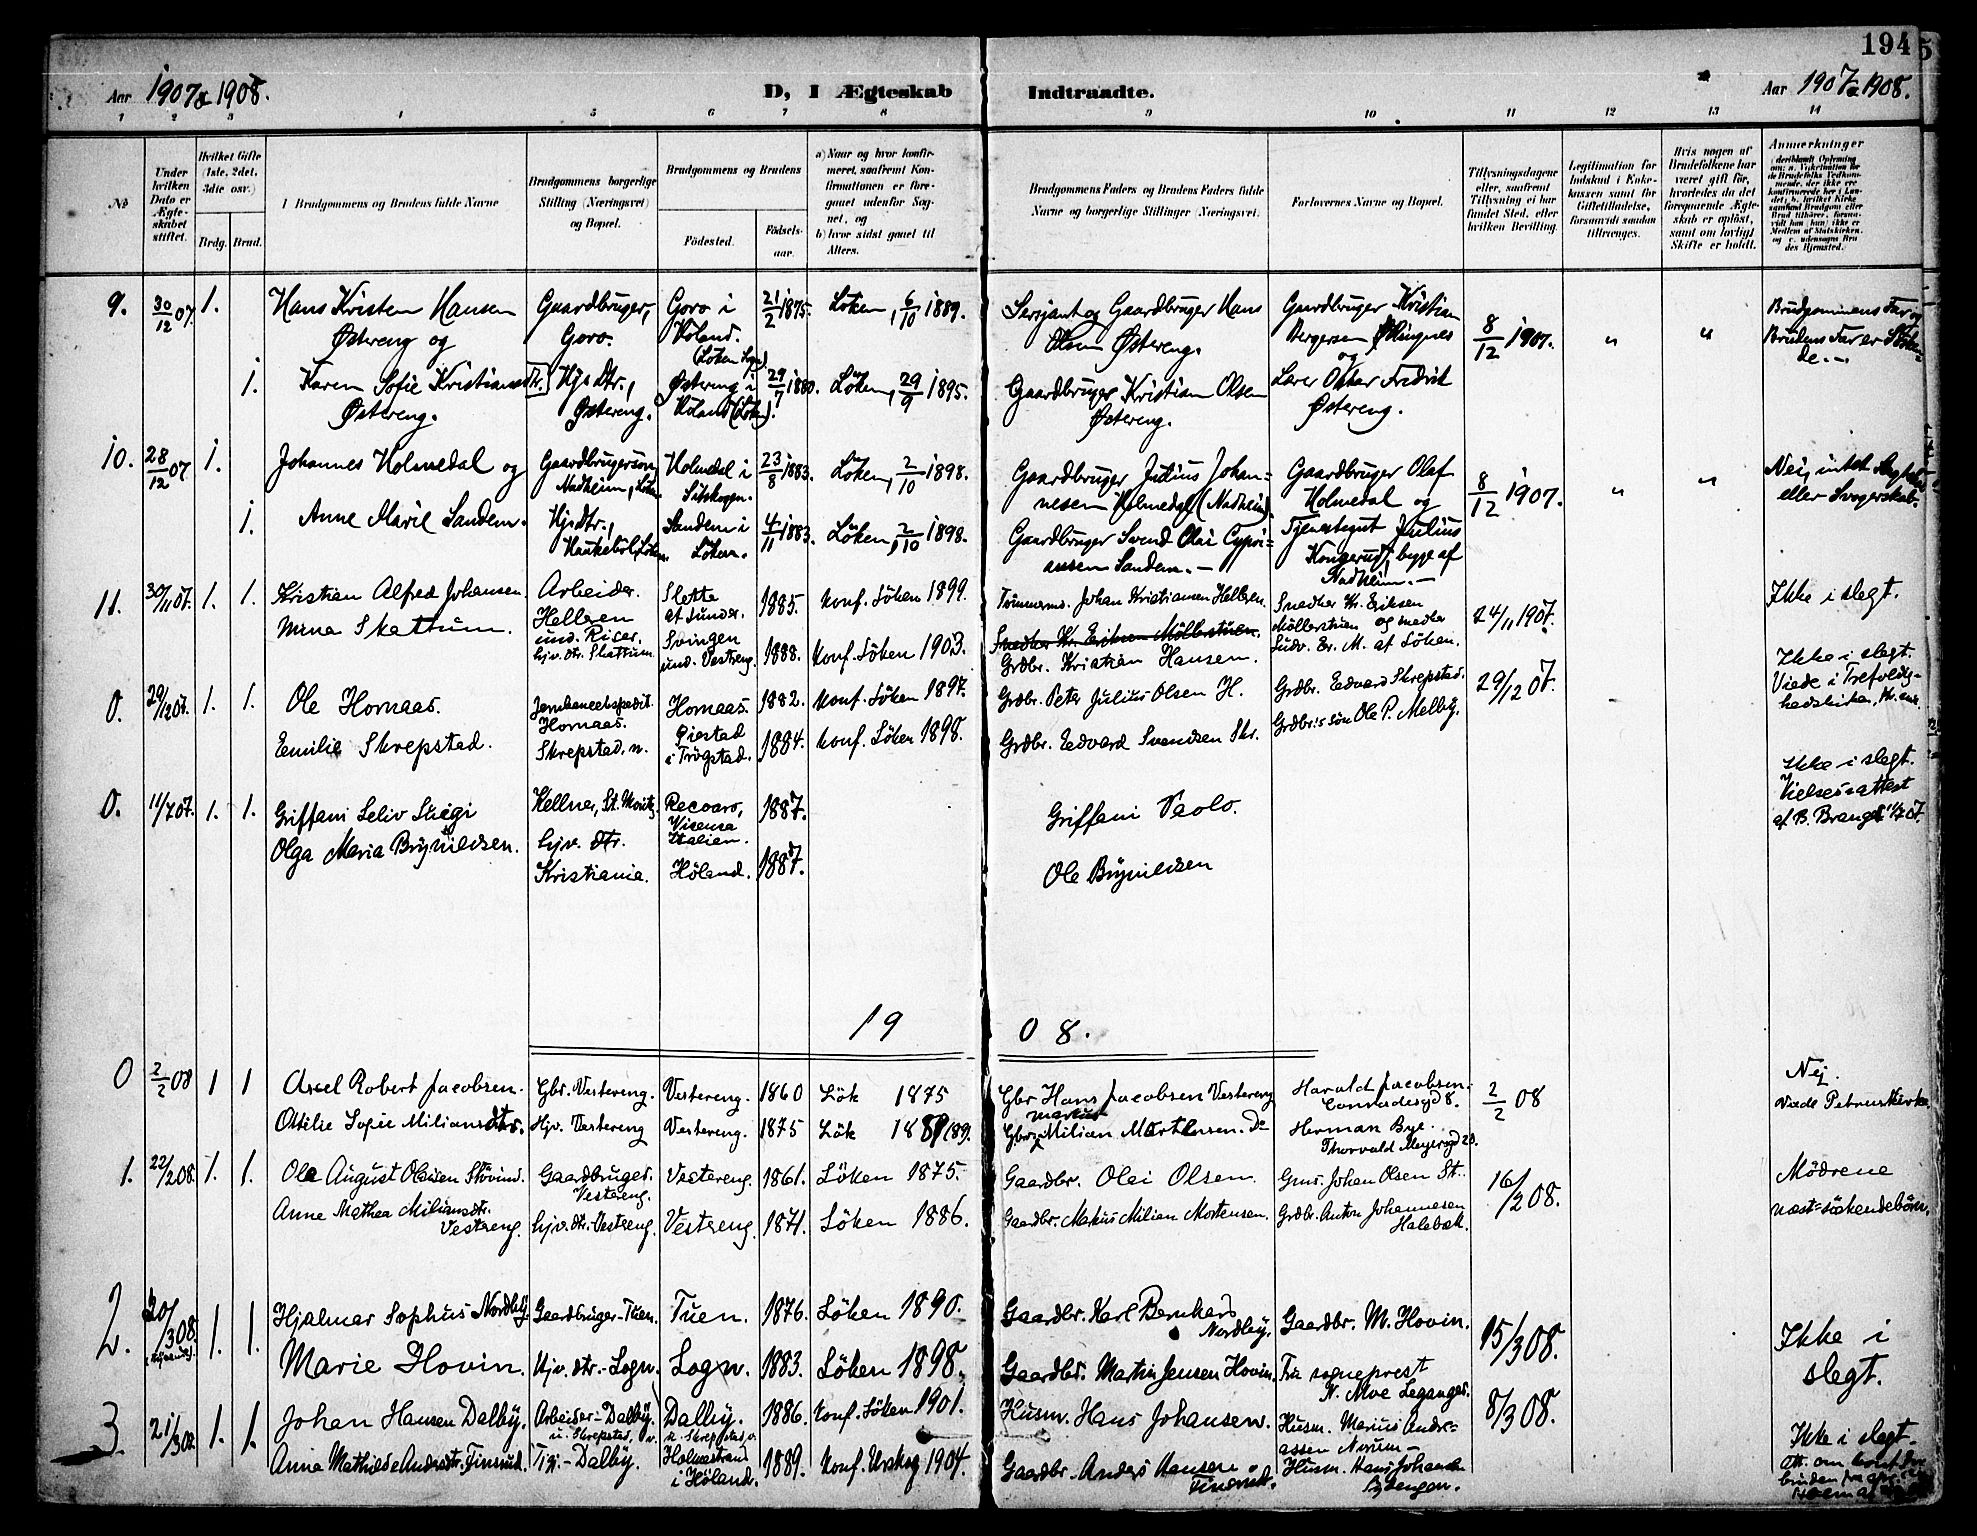 194
5
Aar 1907 & 1908.
D, I Ægteskab
Indtraadte.
Aar 1907 & 1908.
1 2 3 4 5 6 7 8 9 10 11 12 13 14
No
Under hvilken Dato er Ægteskabet stiftet.
Hvilket Gifte (1ste, 2det, 3die osv.)
Brdg. Brud.
Brudgommens og Brudens fulde Navne
Brudgommens borgerlige Stilling (Næringsvei) og Bopæl.
Brudgommens og Brudens
Fødested.
Fødselsaar.
a) Naar og hvor konfirmeret, saafremt Konfirmationen er foregaaet udenfor Sognet, og
b) hvor sidst gaaet til Alters.
Brudgommens Faders og Brudens Faders fulde Navne og borgerlige Stillinger (Næringsvei.
Forlovernes Navne og Bopæl.
Tillysningsdagene eller, saafremt Tillysning ei har fundet Sted, efter hvilken Bevilling.
Legitimation for Indskud i Enkekassen samt for Giftetilladelse, forsaavidt saadan tiltrænges.
Hvis nogen af Brudefolkene har været gift før, hvorledes da det foregaaende Ægteskab er opløst, samt om lovligt Skifte er holdt.
Anmerkninger
9. 30/12 07. 1. Hans Kristen Hansen Østereng og
Gaardbruger, Goro.
Goro i Høland. (Løken Sogn)
21/2 1875. Løken, 6/10 1889.
Serjant og Gaardbruger Hans Olsen Østereng.
Gaardbruger Kristian Bergersen og
8/12 1907. " "
Brudgommens Far og Brudens Far er Søskende.
1. Karen Sofie Kristiansdtr. Østereng.
Hjs dtr., Østereng.
Østereng i Høland (Løken).
29/7 1880. Løken, 29/9 1895.
Gaardbruger Kristian Olsen Østereng.
Lærer Oskar Fredrik Østereng.
10. 28/12 07 1. Johannes Holmedal og
Gaardbrugersøn Nadheim, Løken
Holmedal i Sitskogen.
23/8 1883. Løken, 2/10 1898.
Gaardbruger Julius Johannesen Holmedal (Nadheim).
Gaardbruger Olaf Holmedal og
8/12 1907. " "
Nei, intet Slegtskab eller Svogerskab.
1. Anne Marie Sandem.
Hjs dtr., Haukebøl, Løken.
Sandem i Løken.
4/11 1883. Løken, 2/10 1898.
Gaardbruger Svend Olai Cypriansen Sandem. —
Tjenestegut Julius Kongerud, begge af Nadheim. —
11. 30/11 07. 1. 1. Kristian Alfred Johansen
Arbeider. Helleen und. Riser.
Slotta at Sunder.
1885. Konf. Löken 1899.
Tömmermd. Johan Kristiansen Helleen.
Snedker Kr. Eriksen Möllerstuen og snedker Ludv. Er. M. af Löken.
24/11 1907.
Ikke i slegt.
Mina Skattum.
hjv. dtr. Skattum.
Svingen und. Vestreng.
1888. Konf. Löken 1903.
Snedker Kr. Eriksen Möllerstuen.
Grdbr. Kristian Hansen.
0. 29/12 07. 1. 1. Ole Hornaas.
Jernbaneekspedit. Hornaas.
Hornaas.
1882. Konf. Löken 1897.
Grdbr. Peter Julius Olsen H.
Grdbr. Edvard Skrepstad.
29/12 07.
Ikke i slegt. Viede i Trefoldighedskirken, Kr.ania.
Emilie Skrepstad.
Skrepstad. n.
i Trögstad.
1884. Konf. Löken 1898.
Grdbr. Edvard Svendsen Skr.
Grdbr's sön Ole P. Melby.
0. 11/7 07. 1. 1. Griffani Seliv Skegi
Kellner, St. Moritz.
Recoaro, Visensa Italien.
1887.
Griffani Paolo.
Ikke i slegt. Vielsesattest af B. Brangel 11/7 07.
Olga Maria Brynildsen.
hjv. dtr. Kristiania.
Höland.
1887.
Ole Brynildsen
19 08.
0 2/2 08 1 1 Axel Robert Jacobsen.
Gbr. Vestereng.
Vestereng.
1860 Løk 1875
Gbr Hans Jacobsen Vestereng
Harald Jacobsen. Conradisgd 8.
2/2 08
Nej. Viede Petruskirke
Ottilie Sofie Miliansdtr.
Hjv. Vestereng
Vestereng.
1875 Løk (89).
Gbr. Markus Milian Mortensen. Do
Herman Bye. Thorvald Meyersgd 28.
1. 22/2 08. 1. 1. Ole August Olsen Stövind.
Gaardbruger. Vestreng.
Vestreng.
1861. Löken 1875.
Gaardbr. Olei Olsen.
Johan Olsen St.
16/2 08.
Mödrene næst-söskendebörn.
Anne Mathea Miliansdtr. Vestreng.
hjv. dtr. Vestreng.
Vestreng.
1871. Löken 1886.
Gaardbr. Makus Milian Mortensen.
Grdbr. Anton Johannesen Halebæk.
2. 20/3 08. 1. 1. Hjalmar Sophus Nordby.
Gaardbruger - Tuen.
Tuen.
1876. Löken 1890.
Gaardbr. Karl Bernhard Nordby.
Gaardbr. M. Hovin.
15/3 08.
Ikke i slegt.
Marie Hovin.
Hjv. dtr. - Logn.
Logn.
1883. Löken 1898.
Gaardbr. Martin Jensen Hovin.
Fra sogneprest N. Moe Leganger.
3. 21/3 08 1. 1. Johan Hansen Dalby.
Arbeider - Dalby. u. Skrepstad, v.
Dalby. u. Skrepstad, v.
1886. Konf. Löken 1901.
Husm. Hans Johansen.
Husm. Marius Andreassen
8/3 08.
Ikke i slegt.
Anna Mathilde Andersdtr. Finsrud.
Tj. - Dalby.
Holmestrand i Höland.
1889. Konf. Urskog 1904.
Gaardbr. Anders Hansen Finsrud.
Husm. Hans Johansen